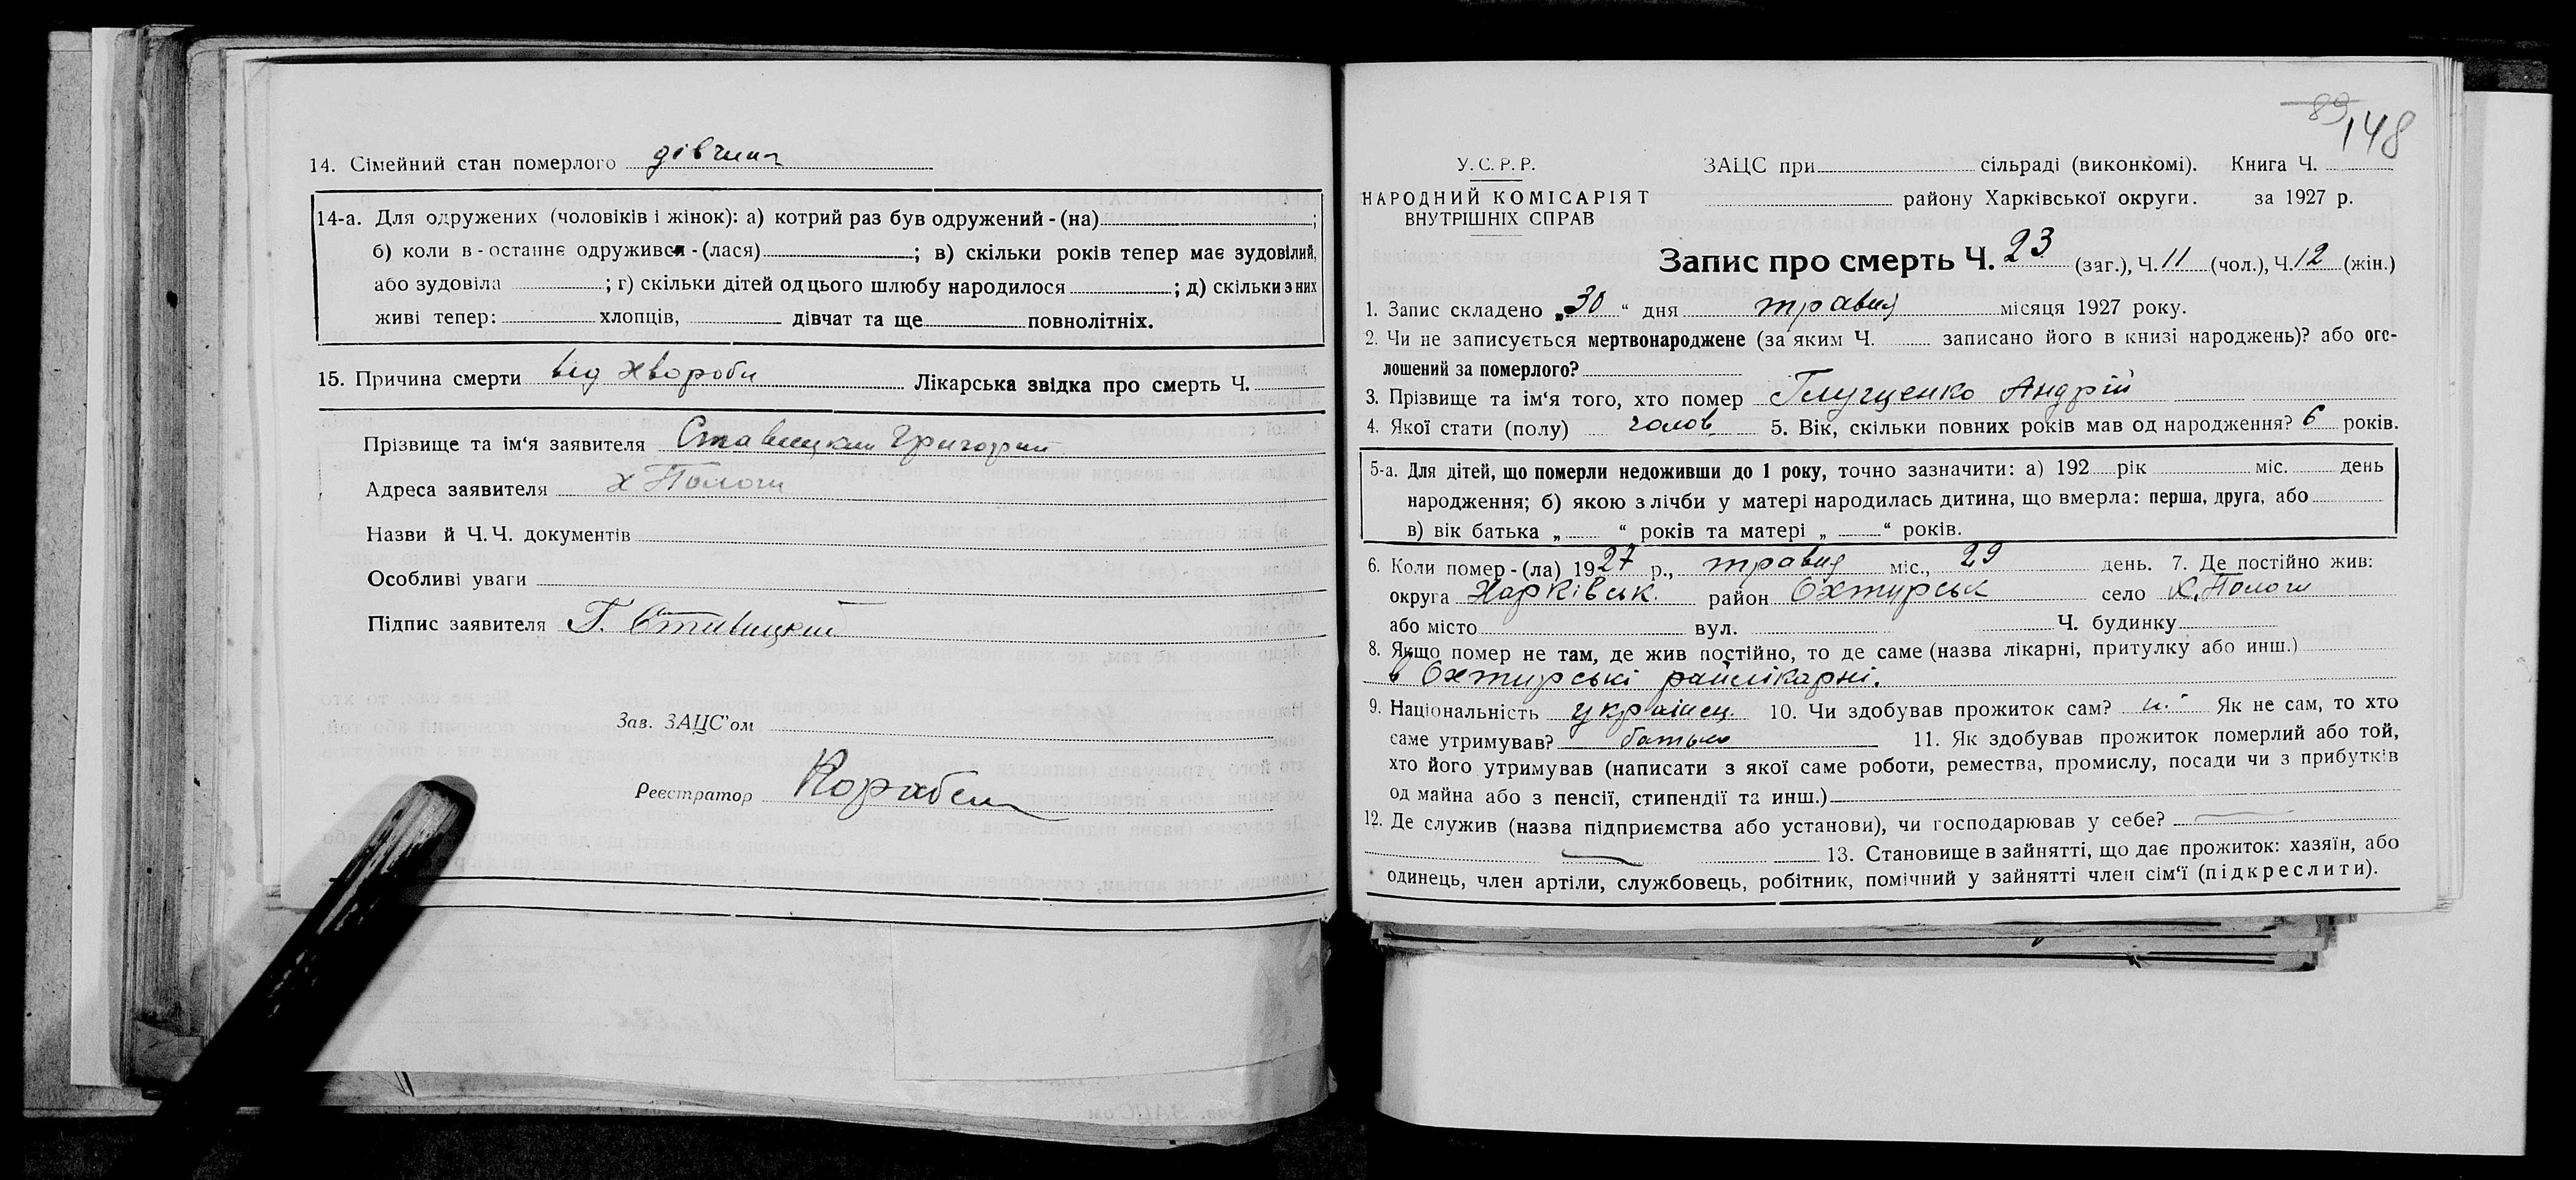 14. Сімейний стан померлого дівчина
14-а. Для одружених (чоловіків і жінок): а) котрий раз був одружений - (на) ;
б) коли в - останнє одружився - (лася) ; в) скільки років тепер має зудовілий,
або зудовіла ; г) скільки дітей од цього шлюбу народилося ; д) скільки з них
живі тепер: хлопців, дівчат та ще повнолітніх.
15. Причина смерти від хвороби Лікарська звідка про смерть Ч.
Прізвище та ім'я заявителя Ставицкий Григорий
Адреса заявителя х Пологи
Назви й Ч. Ч. документів
Особливі уваги
Підпис заявителя Г. Ставицкий
Зав. ЗАЦС'ом
Реєстратор
89
148
У. С. Р. Р.
НАРОДНИЙ КОМІСАРІЯТ
ВНУТРІШНІХ СПРАВ
ЗАЦС при сільраді (виконкомі). Книга Ч.
району Харківської округи. за 1927 р.
Запис про смерть Ч. 23 (заг.), Ч. 11 (чол.), Ч. 12 (жін.)
1. Запис складено „30“ дня травня місяця 1927 року.
2. Чи не записується мертвонароджене (за яким Ч. записано його в книзі народжень)? або ого-
лошений за померлого?
3. Прізвище та ім'я того, хто помер Глущенко Андрій
4. Якої стати (полу) чолов. 5. Вік, скільки повних років мав од народження? 6 років.
5-а. Для дітей, що померли недоживши до 1 року, точно зазначити: а) 192 рік міс. день
народження; б) якою з лічби у матері народилась дитина, що вмерла: перша, друга, або
в) вік батька „ “ років та матері „ “ років.
6. Коли помер - (ла) 1927 р., травня міс., 29 день. 7. Де постійно жив:
округа Харківськ. район Охтирськ село х. Пологи
або місто вул. Ч. будинку
8. Якщо помер не там, де жив постійно, то де саме (назва лікарні, притулку або инш.)
в Охтирські райлікарні.
9. Національність українец. 10. Чи здобував прожиток сам? н. Як не сам, то хто
саме утримував? батько 11. Як здобував прожиток померлий або той,
хто його утримував (написати з якої саме роботи, ремества, промислу, посади чи з прибутків
од майна або з пенсії, стипендії та инш.)
12. Де служив (назва підприємства або установи), чи господарював у себе?
13. Становище в зайнятті, що дає прожиток: хазяїн, або
одинець, член артіли, службовець, робітник, помічний у зайнятті член сім'ї (підкреслити).